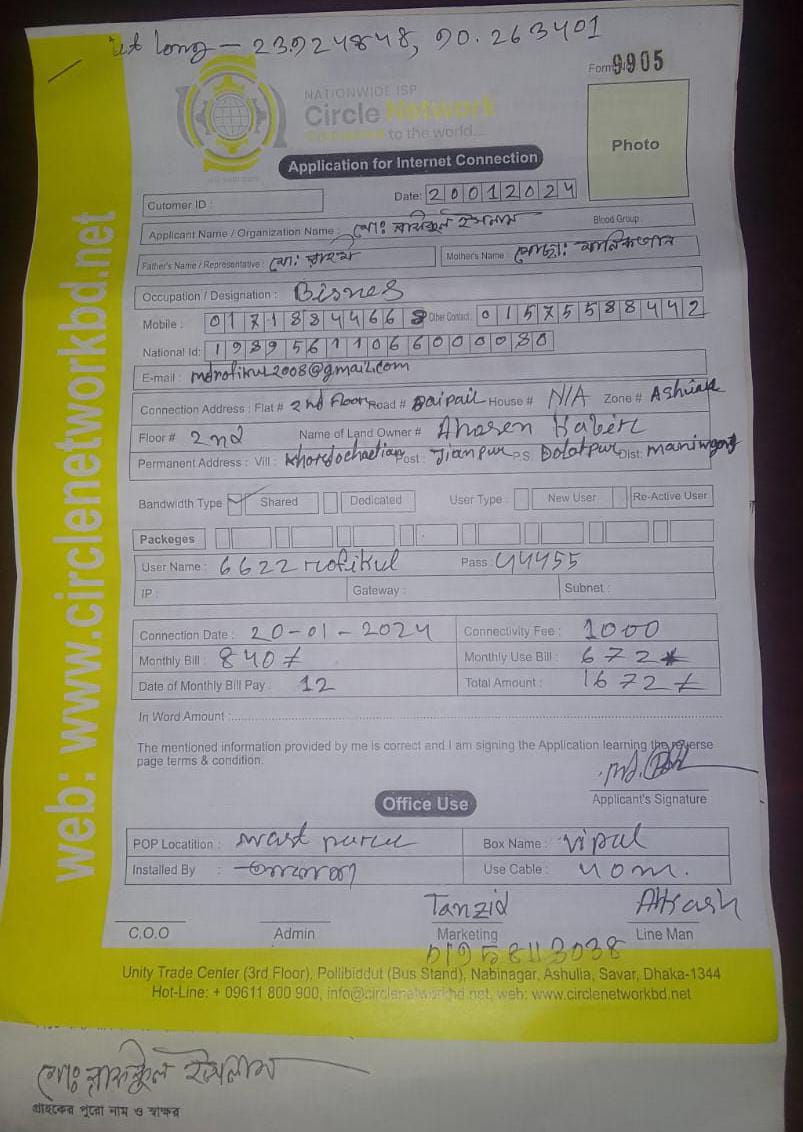 Lat long - 23.924848, 90.263401
Form 9905
NATIONWIDE ISP
Circle Network
Connected to the world...
Photo
Application for Internet Connection
Cutomer ID :
Date: 20012024
Applicant Name / Organization Name : মোঃ রফিকুল ইসলাম Blood Group :
Father's Name / Representative : মোঃ Mother's Name : মোছাঃ
Occupation / Designation : Bisnes
Mobile : 01718844668 Other Contact : 01575588442
National Id: 19895611066000080
E-mail : mdrofikul2008@gmail.com
Connection Address : Flat # 2nd Floor Road # Baipail House # N/A Zone # Ashulia
Floor # 2nd Name of Land Owner # Ahasen Kabir
Permanent Address : Vill : Post : Jianpur P.S Dolatpur Dist: Manikgonj
Bandwidth Type Shared Dedicated User Type : New User Re-Active User
Packeges
User Name : 6622rofikul Pass : 44455
IP : Gateway : Subnet :
Connection Date : 20-01-2024 Connectivity Fee : 1000
Monthly Bill : 840/- Monthly Use Bill : 672
Date of Monthly Bill Pay : 12 Total Amount : 1672/-
In Word Amount :
The mentioned information provided by me is correct and I am signing the Application learning the reverse
page terms & condition.
Applicant's Signature
Office Use
POP Locatition : Box Name : Vipul
Installed By : Use Cable : 40m.
Tanzid Akash
C.O.O Admin Marketing Line Man
01958113038
Unity Trade Center (3rd Floor), Pollibiddut (Bus Stand), Nabinagar, Ashulia, Savar, Dhaka-1344
Hot-Line: + 09611 800 900, info@circlenetworkbd.net, web: www.circlenetworkbd.net
web: www.circlenetworkbd.net
মোঃ রফিকুল ইসলাম
গ্রাহকের পুরো নাম ও স্বাক্ষর